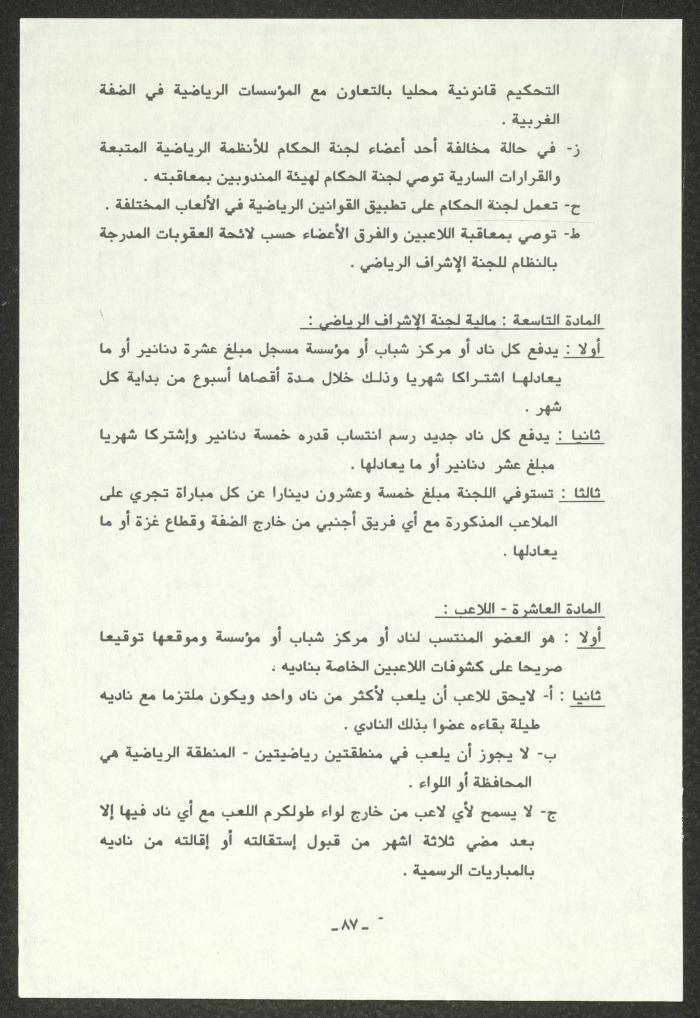 التحكيم قانونية محليا بالتعاون مع المؤسسات الرياضية في الضفة
الغربية .
ز- في حالة مخالفة أحد أعضاء لجنة الحكام للأنظمة الرياضية المتبعة
والقرارات السارية توصي لجنة الحكام لهيئة المندوبين بمعاقبته .
ح- تعمل لجنة الحكام على تطبيق القوانين الرياضية في الألعاب المختلفة .
ط- توصي بمعاقبة اللاعبين والفرق الأعضاء حسب لائحة العقوبات المدرجة
بالنظام للجنة الإشراف الرياضي .
المادة التاسعة : مالية لجنة الإشراف الرياضي :
أولا : يدفع كل ناد أو مركز شباب أو مؤسسة مسجل مبلغ عشرة دنانير أو ما
يعادلها اشتراكا شهريا وذلك خلال مدة أقصاها أسبوع من بداية كل
شهر .
ثانيا : يدفع كل ناد جديد رسم انتساب قدره خمسة دنانير وإشتركا شهريا
مبلغ عشر دنانير أو ما يعادلها .
ثالثا : تستوفي اللجنة مبلغ خمسة وعشرون دينارا عن كل مباراة تجري على
الملاعب المذكورة مع أي فريق أجنبي من خارج الضفة وقطاع غزة أو ما
يعادلها .
المادة العاشرة - اللاعب :
أولا : هو العضو المنتسب لناد أو مركز شباب أو مؤسسة وموقعها توقيعا
صريحا على كشوفات اللاعبين الخاصة بناديه .
ثانيا : أ- لايحق للاعب أن يلعب لأكثر من ناد واحد ويكون ملتزما مع ناديه
طيلة بقاءه عضوا بذلك النادي .
ب- لا يجوز أن يلعب في منطقتين رياضيتين - المنطقة الرياضية هي
المحافظة أو اللواء .
ج- لا يسمح لأي لاعب من خارج لواء طولكرم اللعب مع أي ناد فيها إلا
بعد مضي ثلاثة اشهر من قبول إستقالته أو إقالته من ناديه
بالمباريات الرسمية .
-٨٧-